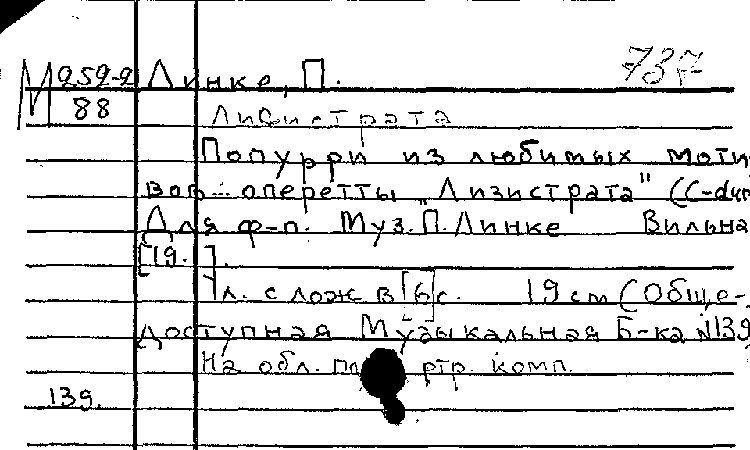 737
М 959-9 Линке, П.
88
Лизистрата
Попурри из любимых моти
вов оперетты „Лизистрата" (C-dur
Для ф-п. Муз. П. Линке Вильна
[19. ].
1л. слож в [6]с. 19 см (Обще-
доступная Музыкальная Б-ка №139
На обл. портр. комп.
139.